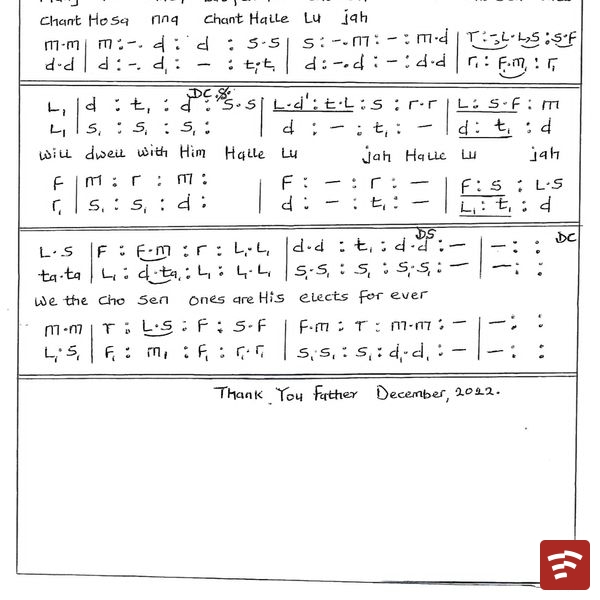 Chant Hosa nna Chant Halle Lu jah
m·m | m:-. d: d : s·s | s:-.m:-:m·d | r:-,L·L,s:s·f
d·d | d:-. d: - : t₁·t₁ | d:-.d:-:d·d | r₁:f·m₁:r₁
DC 𝄋
L₁ | d : t₁ : d : s·s | L·d':t·L:s:r·r | L:s·f:m
L₁ | s₁ : s₁ : s₁: | d:-:t₁:- | d:t₁:d
will dwell with Him Halle Lu jah Halle Lu jah
f | m : r : m: | f:-:r:- | f:s:L·s
r₁ | s₁ : s₁ : d: | d:-:t₁:- | L₁:t₁:d
DS DC
L·s | f : f·m : r : L₁·L₁ | d·d : t₁ : d·d:- | -: :
ta·ta | L₁ : d·ta₁ : L₁ : L₁·L₁ | s₁·s₁ : s₁ : s₁·s₁:- | -: :
We the Cho Sen ones are His elects for ever
m·m | r : L·s : f : s·f | f·m : r : m·m:- | -: :
L₁·s₁ | f₁ : m₁ : f₁ : r₁·r₁ | s₁·s₁ : s₁ : d₁·d₁:- | -: :
Thank You Father December, 2022.